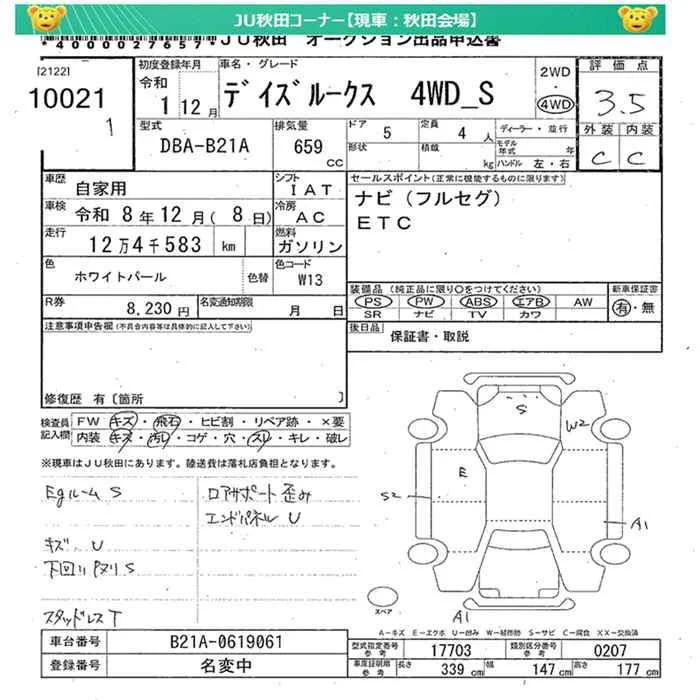 JU秋田コーナー【現車：秋田会場】
*4000027657* JU秋田 オークション出品申込書
[2122]
10021
1
初度登録年月
令和
1年12月
車名・グレード
デイズルークス 4WD_S
2WD
・
4WD
評価点
3.5
外装 内装
C C
型式
DBA-B21A
排気量
659
CC
ドア
5
定員
4 人
形状
積載
kg
ディーラー・並行
モデル年式 年
ハンドル 左・右
車歴
自家用
シフト
IAT
車検
令和 8年12月(8日)
冷房
AC
走行
12万4千583 km
燃料
ガソリン
色
ホワイトパール
色替
色コード
W13
R券
8,230円
名変通知期限
月 日
セールスポイント(正常に機能するものに限ります)
ナビ(フルセグ)
ETC
装備品 (純正品に限り○をつけてください)
PS PW ABS エアB AW
SR ナビ TV カワ
新車保証書
有・無
後日品
保証書・取説
注意事項申告欄(不具合内容等は具体的に記入して下さい)
修復歴 有[箇所 ]
検査員記入欄
FW キズ・飛石・ヒビ割・リペア跡・×要
内装 キズ・汚れ・コゲ・穴・スレ・キレ・破レ
※現車はJU秋田にあります。陸送費は落札店負担となります。
Egルーム S
ロアサポート歪み
エンドパネル U
キズ、U
下回りヌリS
スタッドレスT
S
W2
E
S2
A1
A1
スペア
A-キズ E-エクボ U-凹み W-補修跡 S-サビ C-腐食 XX-交換済
車台番号
B21A-0619061
登録番号
名変中
型式指定番号
参考
17703
類別区分番号
参考
0207
車庫証明用
参考
長さ 339 cm 幅 147 cm 高さ 177 cm